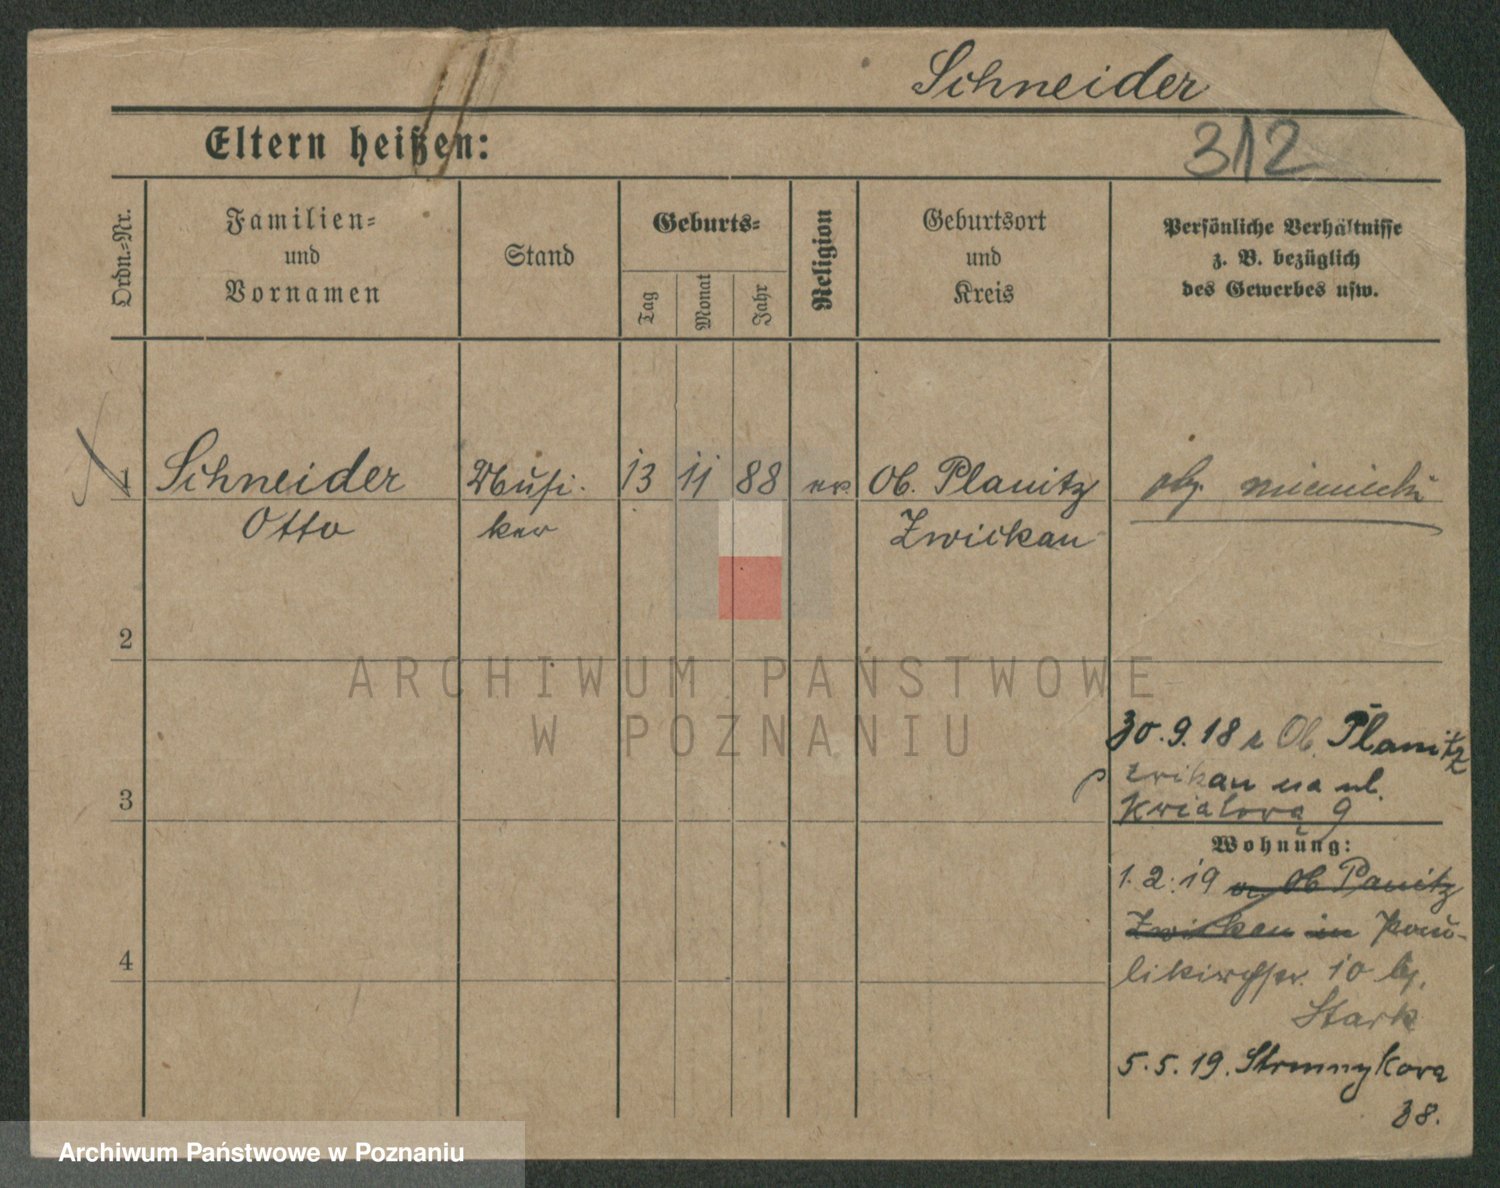 Schneider
312
Eltern heißen:
Ordn.-Nr.
Familien-
und
Vornamen
Stand
Geburts-
Tag
Monat
Jahr
Religion
Geburtsort
und
Kreis
Persönliche Verhältnisse
z. B. bezüglich
des Gewerbes usw.
1 Schneider Musi- 13 11 88 ev. Ob. Planitz ob. niemiecki
Otto ker Zwickau
2
ARCHIWUM PAŃSTWOWE
W POZNANIU
30.9.18 z Ob. Planitz
Zwikau na ul.
3 Kwiatową 9
Wohnung:
1.2.19 Ob Panitz
Zwickau in
4 10 b/.
Stark
5.5.19. Strumykowa
38.
Archiwum Państwowe w Poznaniu